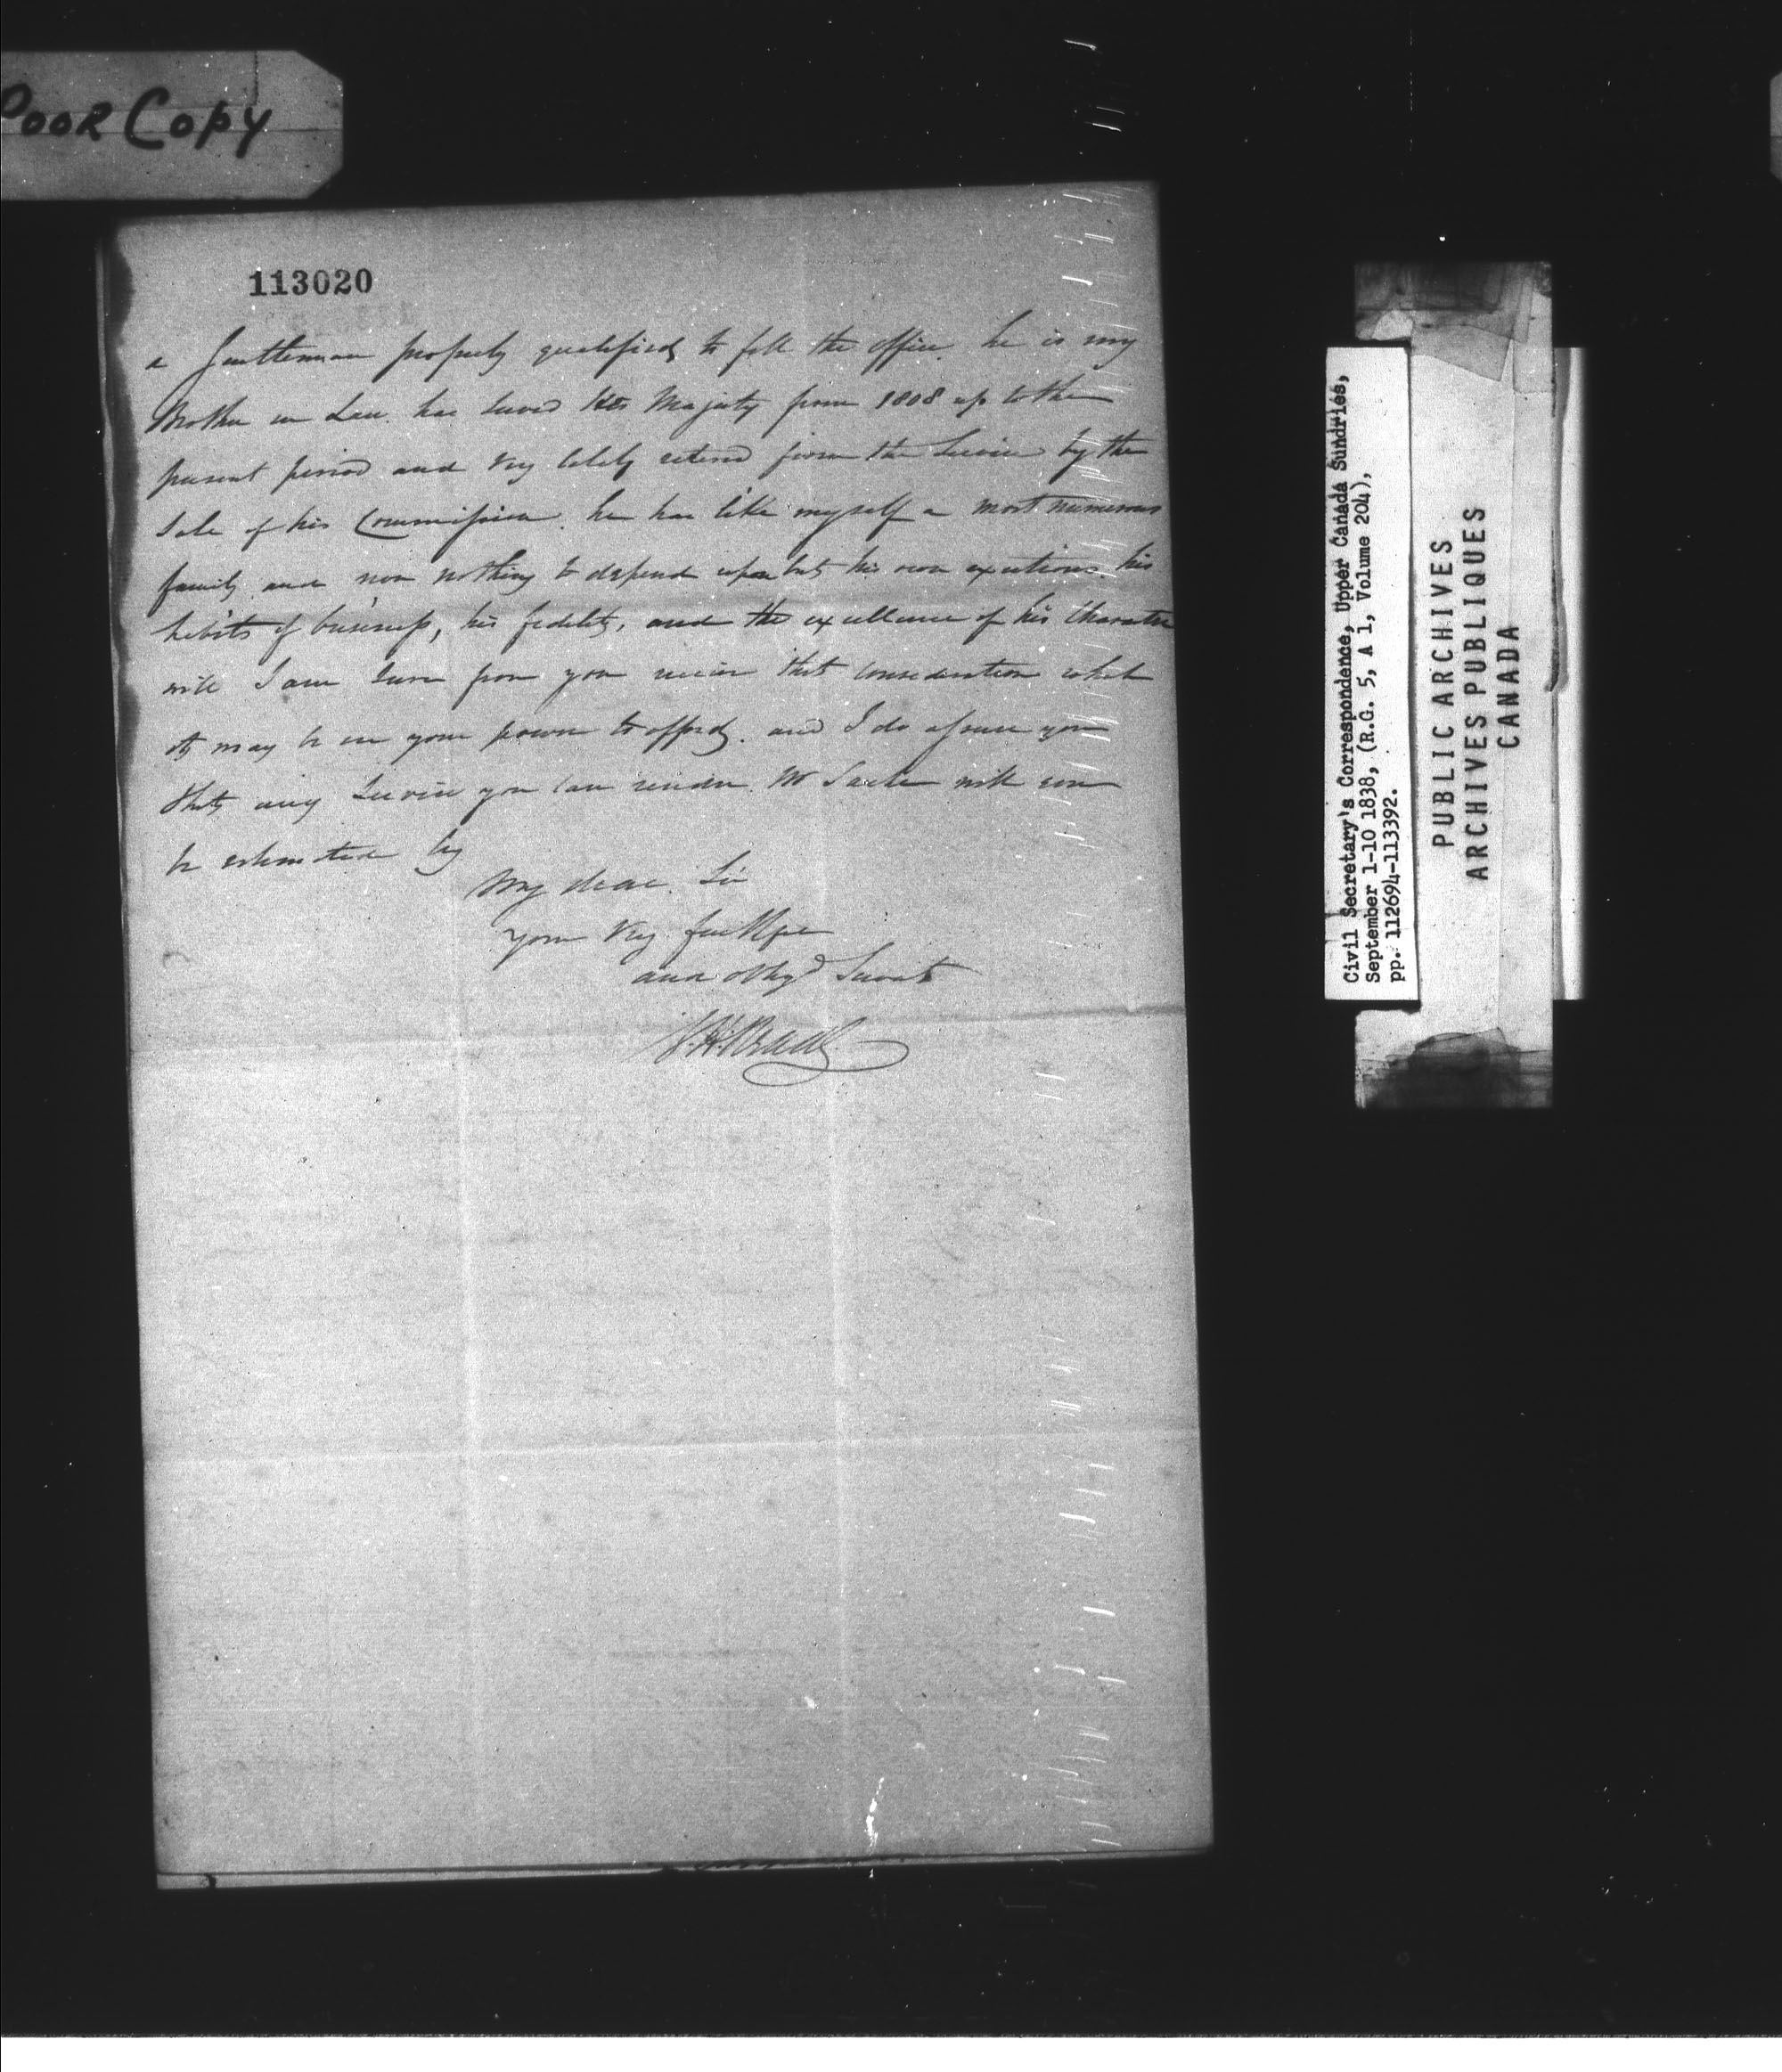 Poor Copy
113020
a Gentleman properly qualified to fill the office. he is my
Brother in Law. has served His Majesty from 1808 up to the
present period and very lately retired from the Service by the
Sale of his Commission. he has like myself a most numerous
family and now nothing to depend upon but his own exertions. his
habits of business, his fidelity, and the excellence of his Character
will I am sure from you receive that consideration which
it may be in your power to afford. and I do assure you
that any Service you can render Mr will ever
be estimated by
My dear Sir
your very faithful
and obligd Servant
Civil Secretary's Correspondence, Upper Canada Sundries,
September 1-10 1838, (R.G. 5, A 1, Volume 204),
pp. 112694-113392.
PUBLIC ARCHIVES
ARCHIVES PUBLIQUES
CANADA